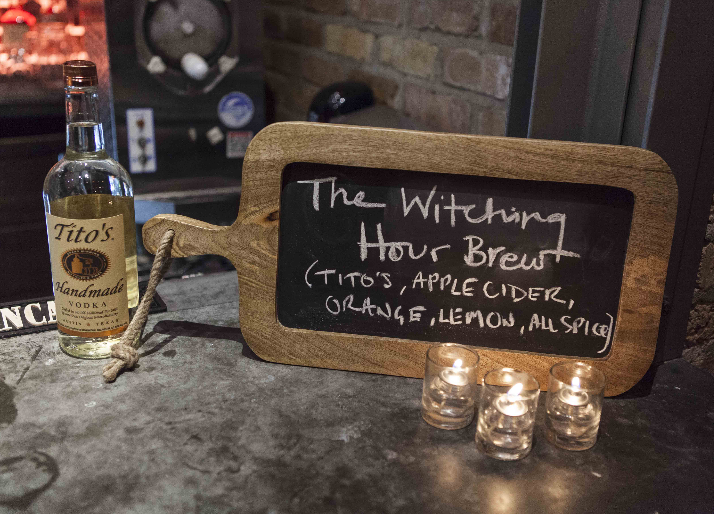 Tito's
Handmade
VODKA
AUSTIN ★ TEXAS
The Witching
Hour Brew
(TITO'S, APPLE CIDER,
ORANGE, LEMON, ALLSPICE)